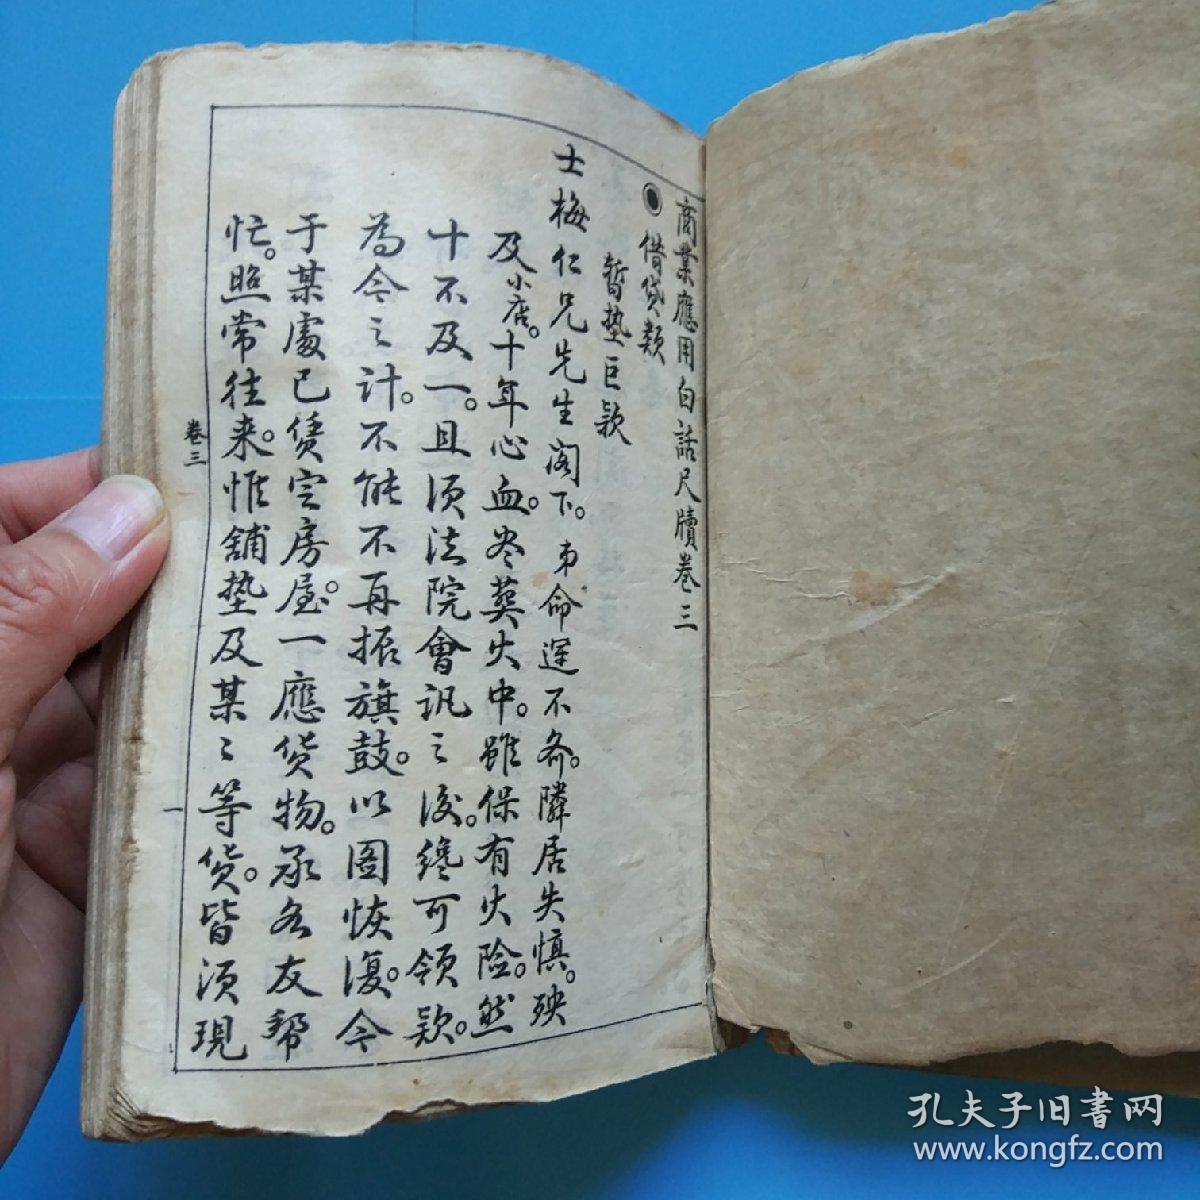 商業應用白話尺牘卷三
借貸類
暫墊巨款
士梅仁兄先生阁下。弟命運不齐。隣居失慎。殃
及小店。十年心血。尽葬火中。雖保有火险。然
十不及一。且须法院會訊之後。纔可领款。
為今之计。不能不再振旗鼓。以图恢復。今
于某處已赁定房屋。一應货物。承各友帮
忙。照常往来。惟舖墊及某〻等货。皆须現
卷三
一
孔夫子旧書网
www.kongfz.com